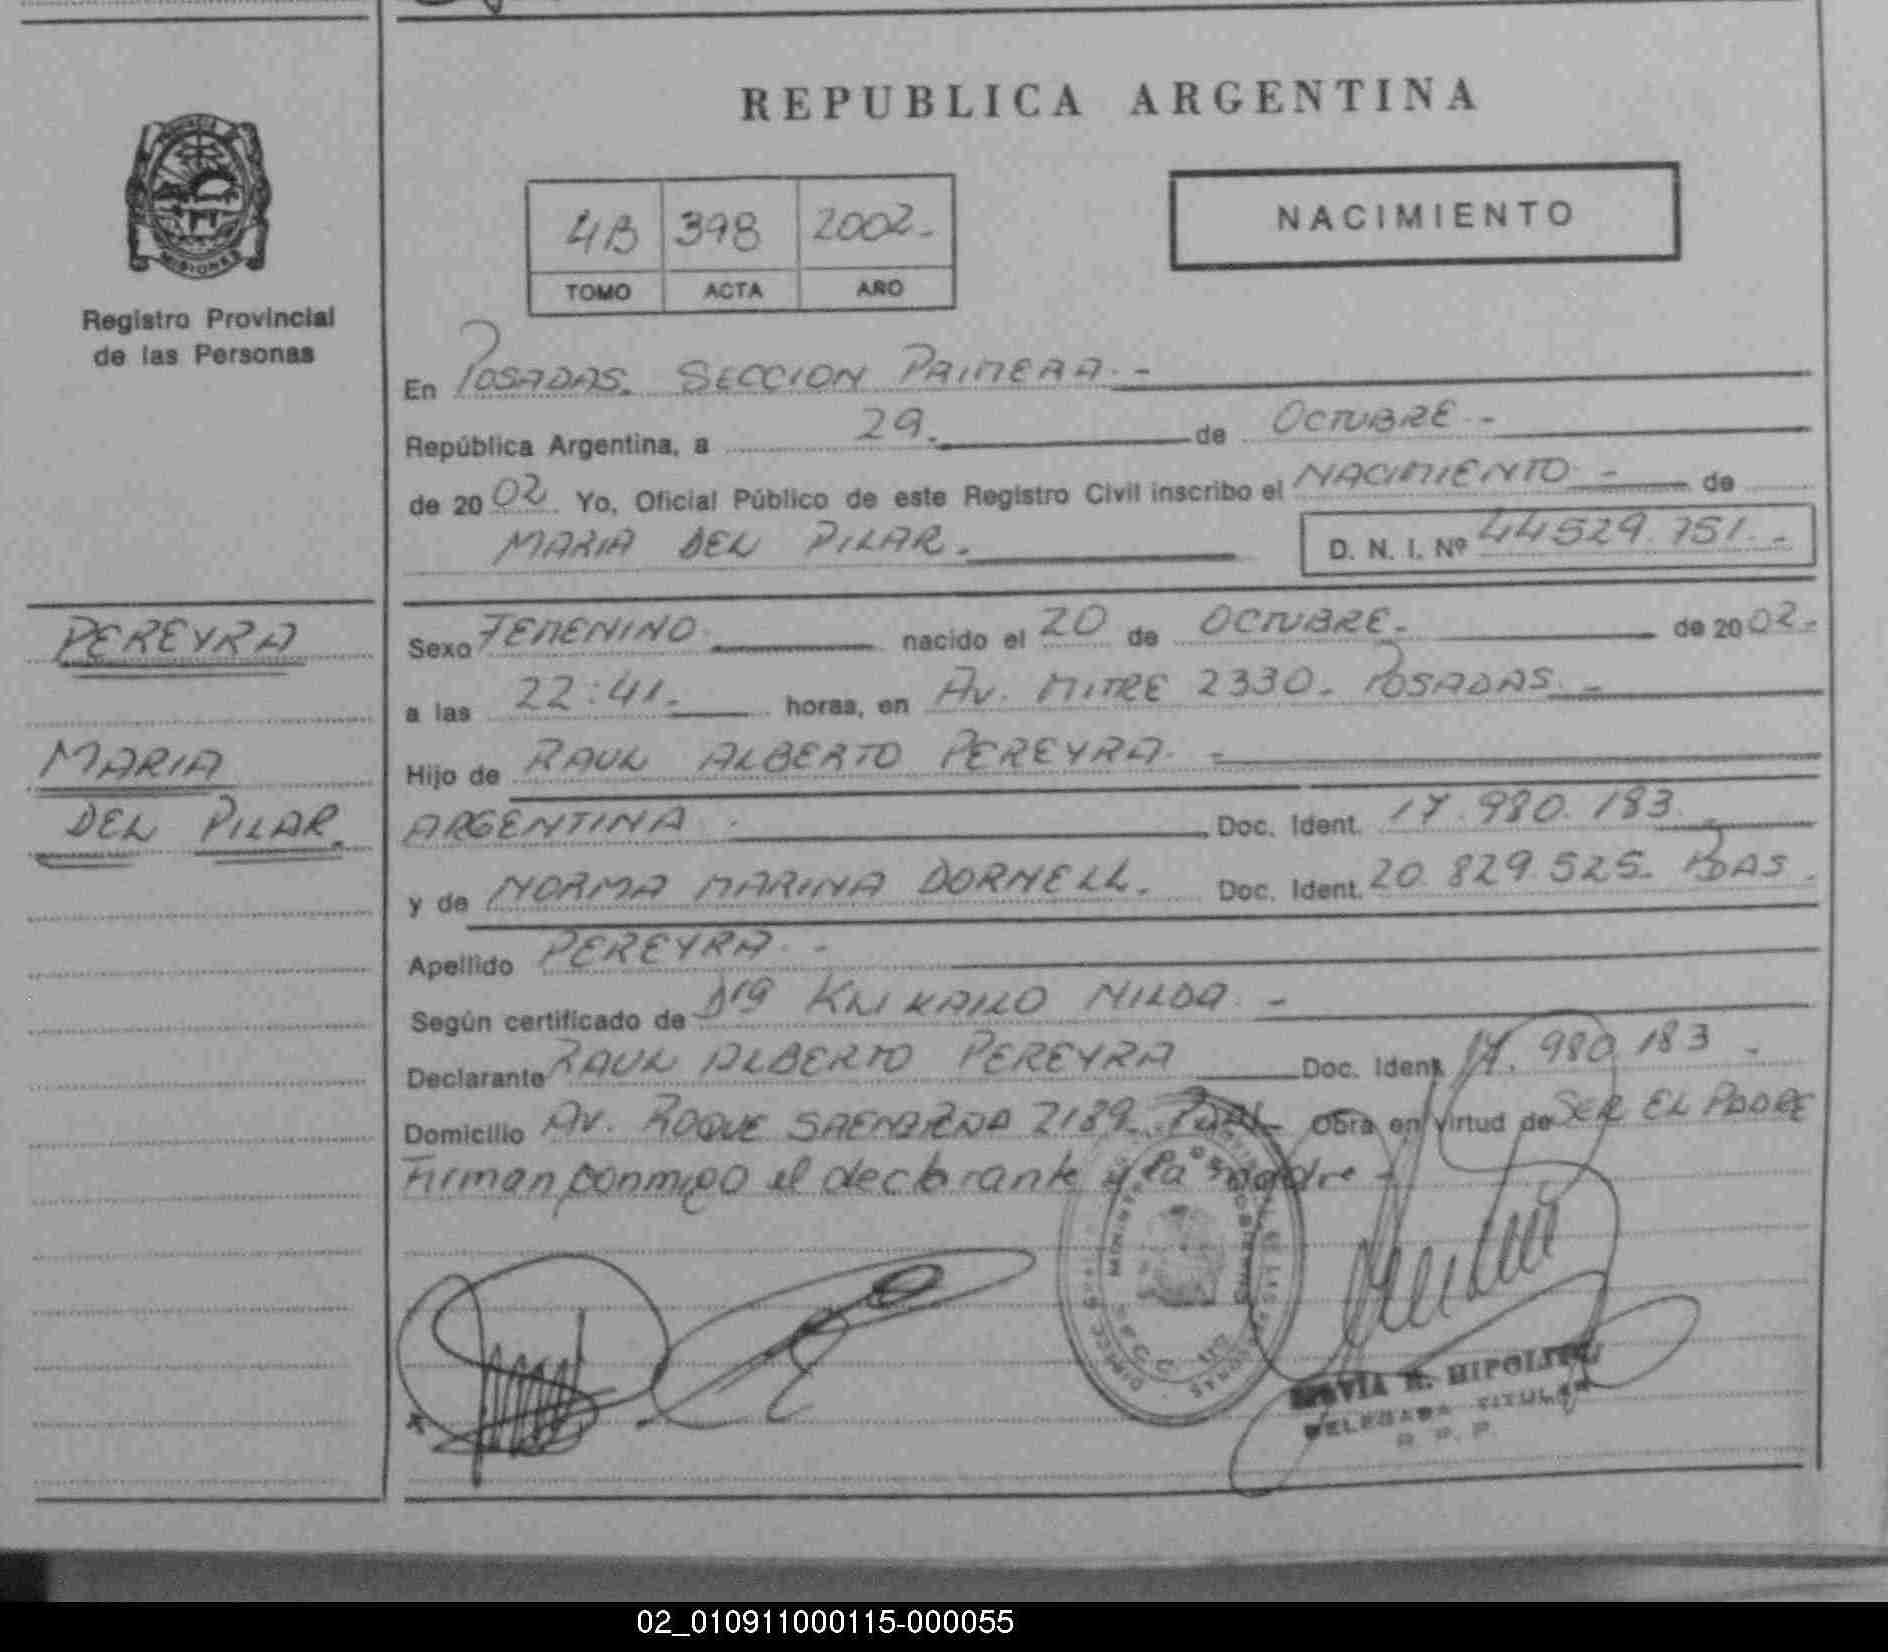 REPUBLICA ARGENTINA
MISIONES
Registro Provincial
de las Personas
4B 398 2002.-
TOMO ACTA AÑO
NACIMIENTO
En POSADAS. SECCION PRIMERA.-
República Argentina, a 29. de OCTUBRE.-
de 2002 Yo, Oficial Público de este Registro Civil inscribo el NACIMIENTO.- de
MARIA DEL PILAR. D. N. I. Nº 44529.751.-
PEREYRA
MARIA
DEL PILAR.
Sexo FEMENINO nacido el 20 de OCTUBRE.- de 2002.-
a las 22:41.- horas, en AV. MITRE 2330. POSADAS.-
Hijo de RAUL ALBERTO PEREYRA.-
ARGENTINA. Doc. Ident. 17.980.183.
y de NORMA MARINA DORNELL. Doc. Ident. 20.829.525. PDAS.
Apellido PEREYRA.-
Según certificado de NILDA.-
Declarante RAUL ALBERTO PEREYRA Doc. Ident. 17.980.183.-
Domicilio AV. ROQUE 2189 Obra en virtud de SER EL PADRE
Firman conmigo el declarante y la madre.-
HIPOLITO
DELEGADA TITULAR
R. P. P.
02_010911000115-000055